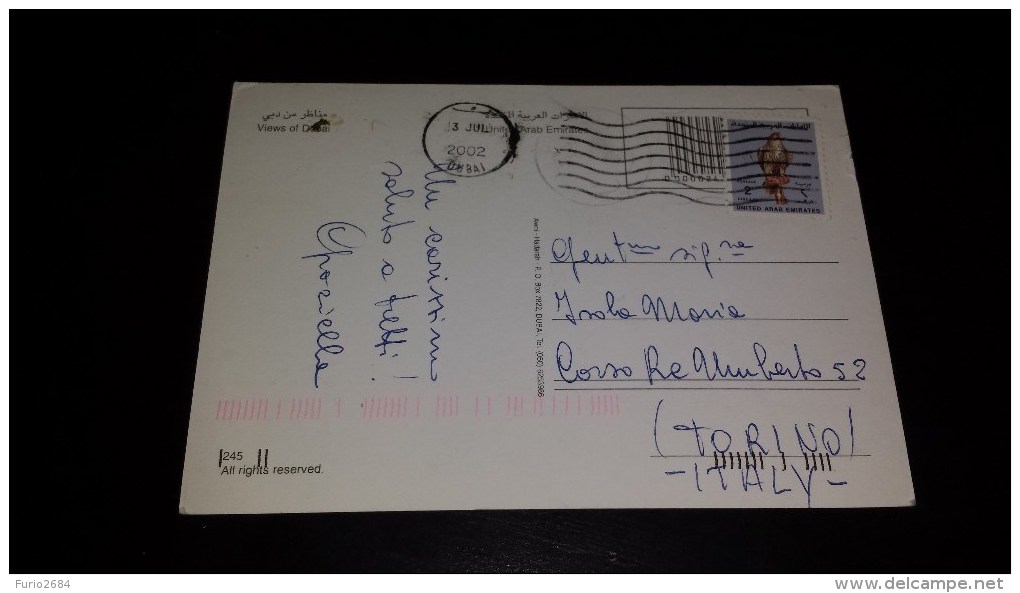 مناظر من دبي
Views of Dubai
الإمارات العربية المتحدة
United Arab Emirates
3 JUL
2002
DUBAI
0000024
2
UNITED ARAB EMIRATES
Un carissimo
saluto a tutti!
Graziella
P. O. Box 2922, DUBAI
Gent.ma sig.ra
Isola Maria
Corso Re Umberto 52
(TORINO)
- ITALY -
245
All rights reserved.
Furio2684
www.delcampe.net